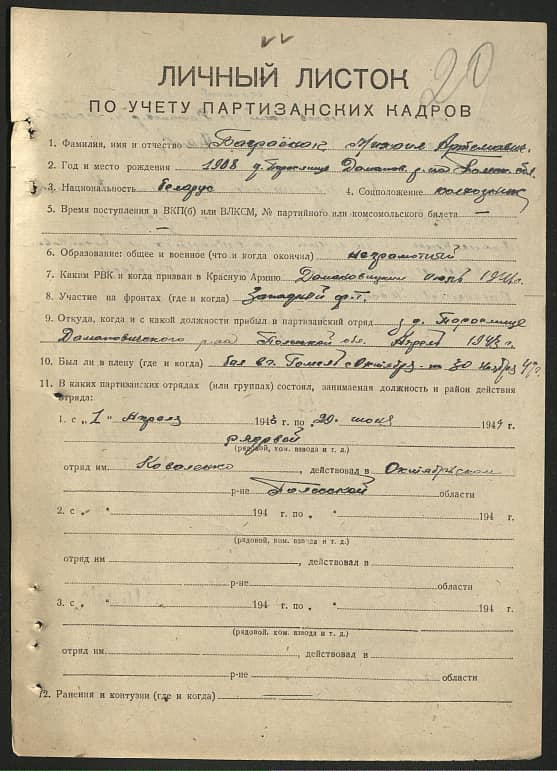 20
ЛИЧНЫЙ ЛИСТОК
ПО УЧЕТУ ПАРТИЗАНСКИХ КАДРОВ
1. Фамилия, имя и отчество
2. Год и место рождения 1908 д.
3. Национальность белорус 4. Соцположение колхозник
5. Время поступления в ВКП(б) или ВЛКСМ, № партийного или комсомольского билета —
6. Образование: общее и военное (что и когда окончил) неграмотный
7. Каким РВК и когда призван в Красную Армию
8. Участие на фронтах (где и когда) Западной
9. Откуда, когда и с какой должности прибыл в партизанский отряд з д.
Апрель 1943 г.
10. Был ли в плену (где и когда) был в г. Гомель с Октябрь по 30 ноябрь
11. В каких партизанских отрядах (или группах) состоял, занимаемая должность и район действия
отряда:
1. с „ 1 " Апреля 1943 г. по „ 29 " июня 1944 г.
рядовой
(рядовой, ком. взвода и т. д.)
отряд им. Коваленко, действовал в Октябрьском
р-не Полесской области
2. с „ " 194 г. по „ " 194 г.
(рядовой, ком. взвода и т. д.)
отряд им. , действовал в
р-не области
3. с „ " 194 г. по „ " 194 г.
(рядовой, ком. взвода и т. д.)
отряд им. , действовал в
р-не области
12. Ранения и контузии (где и когда) —